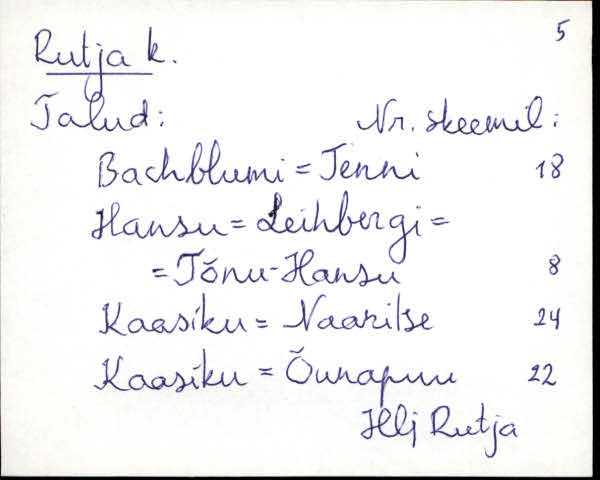 5
Rutja k.
Talud: Nr. skeemil:
Bachblumi = Jenni 18
Hansu = Leihbergi =
= Tõnu-Hansu 8
Kaasiku = Naaritse 24
Kaasiku = Õunapuu 22
Hlj Rutja